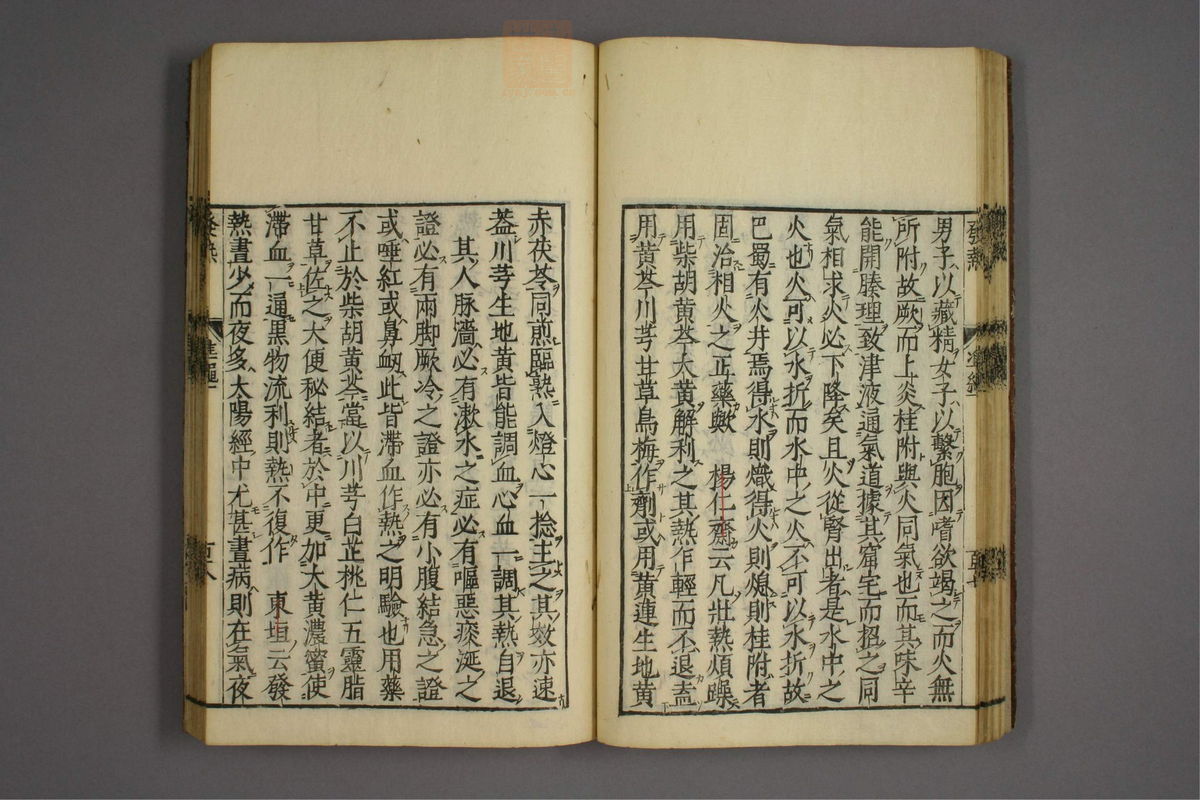 發熱
男子以藏精女子以繫胞因嗜欲竭之而火無
所附故厥而上炎桂附與火同氣也而其味辛
能開腠理致津液通氣道據其窟宅而招之同
氣相求火必下降矣且火從腎出者是水中之
火也火可以水折而水中之火不可以水折故
巴蜀有火井焉得水則熾得火則熄則桂附者
固治相火之正藥歟　楊仁齋云凡壯熱煩躁
用柴胡黃芩大黃解利之其熱作輕而不退盍
用黃芩川芎甘草烏梅作劑或用黃連生地黃
赤茯苓同煎臨熟入燈心一捻主之其效亦速
葢川芎生地黃皆能調血心血一調其熱自退
其人脉濇必有漱水之症必有嘔惡痰涎之
證必有兩脚厥冷之證亦必有小腹結急之證
或唾紅或鼻衂此皆滯血作熱之明驗也用藥
不止於柴胡黃芩當以川芎白芷桃仁五靈脂
甘草佐之大便秘結者於中更加大黃濃蜜使
滯血一通黑物流利則熱不復作　東垣云發
熱晝少而夜多太陽經中尤甚晝病則在氣夜